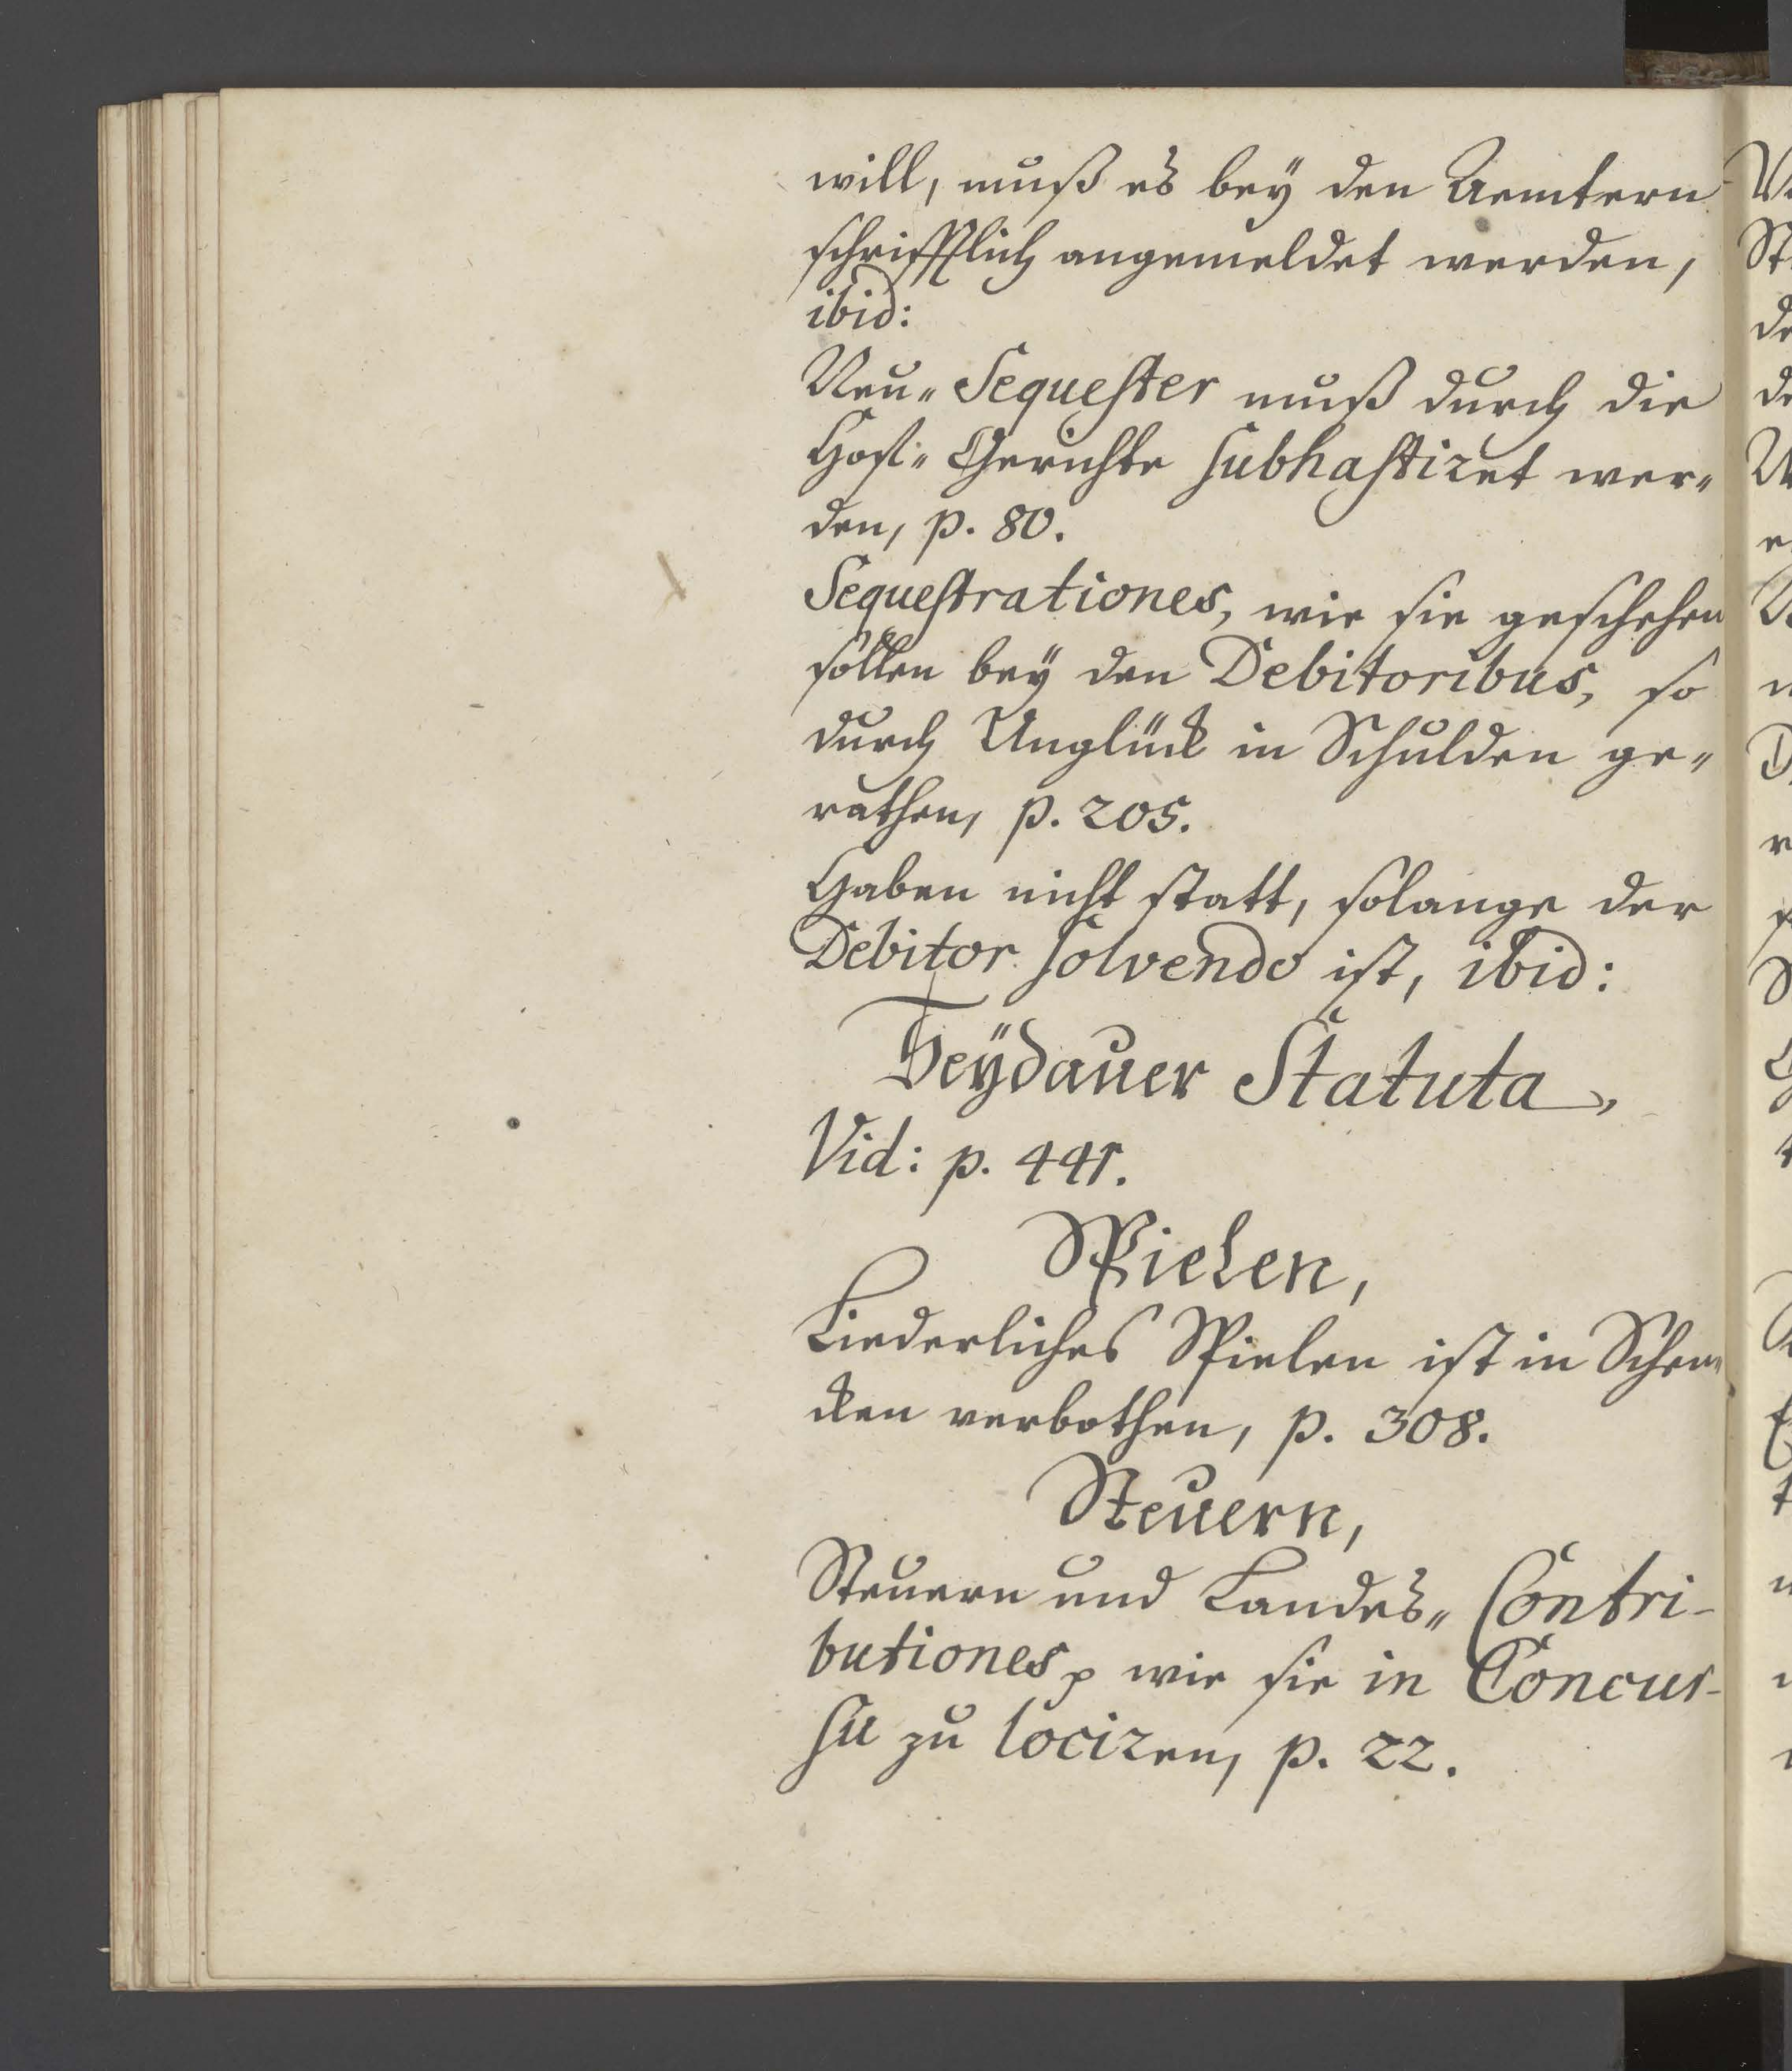 will, muß es bey den Aemtern
schrifftlich angemeldet werden,
ibid:
Neu„ Sequester muß durch die
Hoff„ Gerichte subhastiret wer„
den, p. 80.
Sequestrationes, wie sie geschehen
sollen bey den Debitoribus, so
durch Unglück in Schulden ge„
rathen, p. 205.
Haben nicht statt, solange der
Debitor solvendo ist, ibid:
Seÿdauer Statuta,
Vid: p. 441.
Spielen,
Liederliches Spielen ist in Schen„
cken verbothen, p. 308.
Steuern,
Steuern und Landes„ Contri-
butiones, wie sie in Concur-
su zu lociren, p. 22.